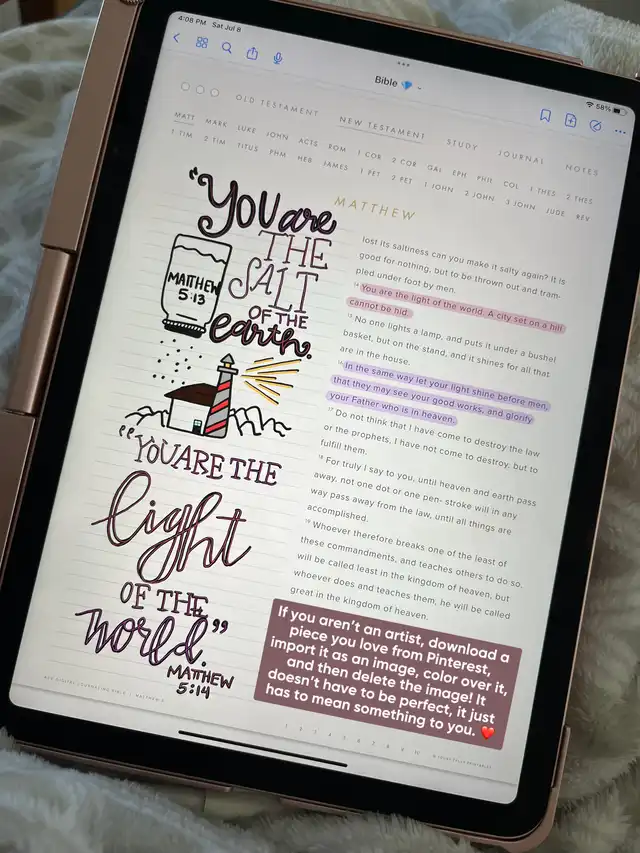 4:08 PM Sat Jul 8
58%
Bible 💎
OLD TESTAMENT NEW TESTAMENT STUDY JOURNAL NOTES
MATT MARK LUKE JOHN ACTS ROM 1 COR 2 COR GAL EPH PHIL COL 1 THES 2 THES
1 TIM 2 TIM TITUS PHM HEB JAMES 1 PET 2 PET 1 JOHN 2 JOHN 3 JOHN JUDE REV
MATTHEW
"YOU are
THE
SALT
OF THE
earth.
MATTHEW
5:13
"YOU ARE THE
light
OF THE
world."
MATTHEW
5:14
lost its saltiness can you make it salty again? It is
good for nothing, but to be thrown out and tram-
pled under foot by men.
14 You are the light of the world. A city set on a hill
cannot be hid.
15 No one lights a lamp, and puts it under a bushel
basket, but on the stand, and it shines for all that
are in the house.
16 In the same way let your light shine before men,
that they may see your good works, and glorify
your Father who is in heaven.
17 Do not think that I have come to destroy the law
or the prophets, I have not come to destroy, but to
fulfill them.
18 For truly I say to you, until heaven and earth pass
away, not one dot or one pen- stroke will in any
way pass away from the law, until all things are
accomplished.
19 Whoever therefore breaks one of the least of
these commandments, and teaches others to do so,
will be called least in the kingdom of heaven, but
whoever does and teaches them, he will be called
great in the kingdom of heaven.
If you aren't an artist, download a
piece you love from Pinterest,
import it as an image, color over it,
and then delete the image! It
doesn't have to be perfect, it just
has to mean something to you. ❤️
1 2 3 4 5 6 7 8 9 10